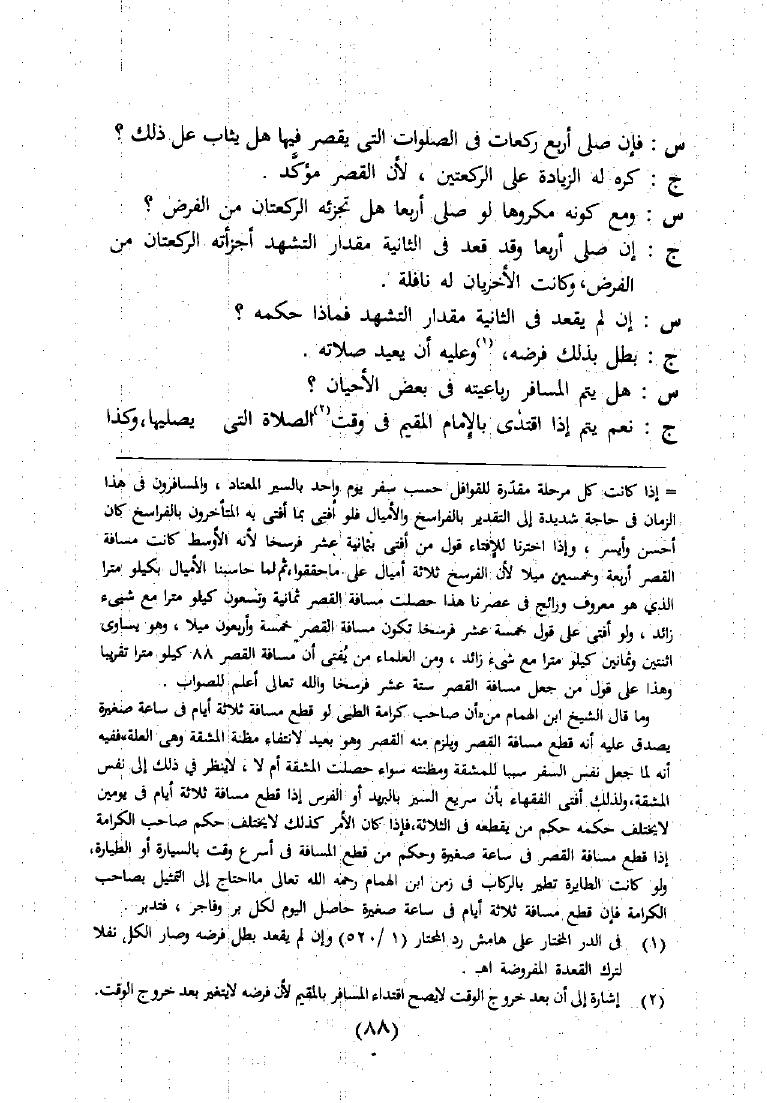 س : فإن صلى أربع ركعات فى الصلوات التى يقصر فيها هل يثاب عل ذلك ؟
ج : كره له الزيادة على الركعتين ، لأن القصر مؤكَّد .
س : ومع كونه مكروها لو صلى أربعا هل تجزئه الركعتان من الفرض ؟
ج : إن صلى أربعا وقد قعد فى الثانية مقدار التشهد أجزأته الركعتان من
الفرض، وكانت الأخريان له نافلة .
س : إن لم يقعد فى الثانية مقدار التشهد فماذا حكمه ؟
ج : بطل بذلك فرضه، (١)وعليه أن يعيد صلاته .
س : هل يتم المسافر رباعيته فى بعض الأحيان ؟
ج : نعم يتم إذا اقتدى بالإمام المقيم فى وقت(٢)الصلاة التى يصليها،وكذا
= إذا كانت كل مرحلة مقدّرة للقوافل حسب سفر يوم واحد بالسير المعتاد ، والمسافرون فى هذا
الزمان فى حاجة شديدة إلى التقدير بالفراسخ والأميال فلو أفتى بما أفتى به المتأخرون بالفراسخ كان
أحسن وأيسر ، وإذا اخترنا للإفتاء قول من أفتى بثمانية عشر فرسخا لأنه الأوسط كانت مسافة
القصر أربعة وخمسين ميلا لأن الفرسخ ثلاثة أميال على ماحققوا،ثم لما حاسبنا الأميال بكيلو مترا
الذي هو معروف ورائج فى عصرنا هذا حصلت مسافة القصر ثمانية وتسعون كيلو مترا مع شيىء
زائد ، ولو أفتى على قول خمسة عشر فرسخا تكون مسافة القصر خمسة وأربعون ميلا ، وهو يساوى
اثنتين وثمانين كيلو مترا مع شىء زائد ، ومن العلماء من يُفتى أن مسافة القصر ٨٨ كيلو مترا تقريبا
وهذا على قول من جعل مسافة القصر ستة عشر فرسخا والله تعالى أعلم للصواب .
وما قال الشيخ ابن الهمام من«أن صاحب كرامة الطى لو قطع مسافة ثلاثة أيام فى ساعة صغيرة
يصدق عليه أنه قطع مسافة القصر ويلزم منه القصر وهو بعيد لانتفاء مظنة المشقة وهى العلة»ففيه
أنه لما جعل نفس السفر سببا للمشقة ومظنته سواء حصلت المشقة أم لا ، لاينظر في ذلك إلى نفس
المشقة،ولذلك أفتى الفقهاء بأن سريع السير بالبريد أو الفرس إذا قطع مسافة ثلاثة أيام فى يومين
لايختلف حكمه حكم من يقطعه فى الثلاثة،فإذا كان الأمر كذلك لايختلف حكم صاحب الكرامة
إذا قطع مسافة القصر فى ساعة صغيرة وحكم من قطع المسافة فى أسرع وقت بالسيارة أو الطيارة،
ولو كانت الطايرة تطير بالركاب فى زمن ابن الهمام رحمه الله تعالى مااحتاج إلى التمثيل بصاحب
الكرامة فإن قطع مسافة ثلاثة أيام فى ساعة صغيرة حاصل اليوم لكل بر وفاجر ، فتدبر .
(١) فى الدر المختار على هامش رد المحتار (١ /٥٢٠) وإن لم يقعد بطل فرضه وصار الكل نفلا
لترك القعدة المفروضة اهـ .
(٢) إشارة إلى أن بعد خروج الوقت لايصح اقتداء المسافر بالمقيم لأن فرضه لايتغير بعد خروج الوقت.
(٨٨)